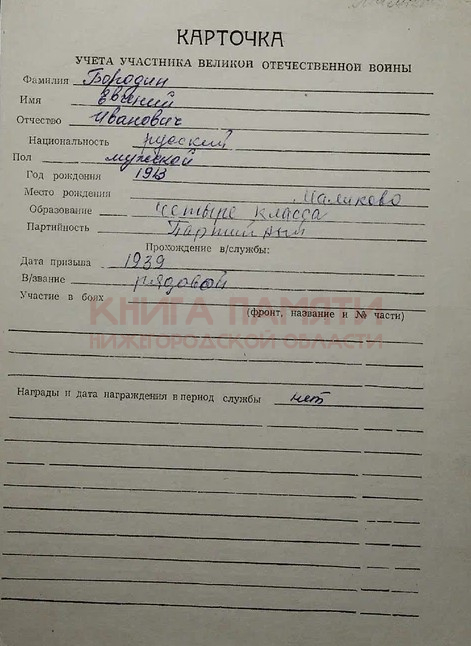 КАРТОЧКА
УЧЕТА УЧАСТНИКА ВЕЛИКОЙ ОТЕЧЕСТВЕННОЙ ВОЙНЫ
Фамилия Бородин
Имя Евгений
Отчество Иванович
Национальность русский
Пол мужской
Год рождения 1913
Место рождения Маликово
Образование четыре класса
Партийность Партийный
Прохождение в/службы:
Дата призыва 1939
В/звание рядовой
Участие в боях
(фронт, название и № части)
КНИГА ПАМЯТИ
НИЖЕГОРОДСКОЙ ОБЛАСТИ
Награды и дата награждения в период службы нет